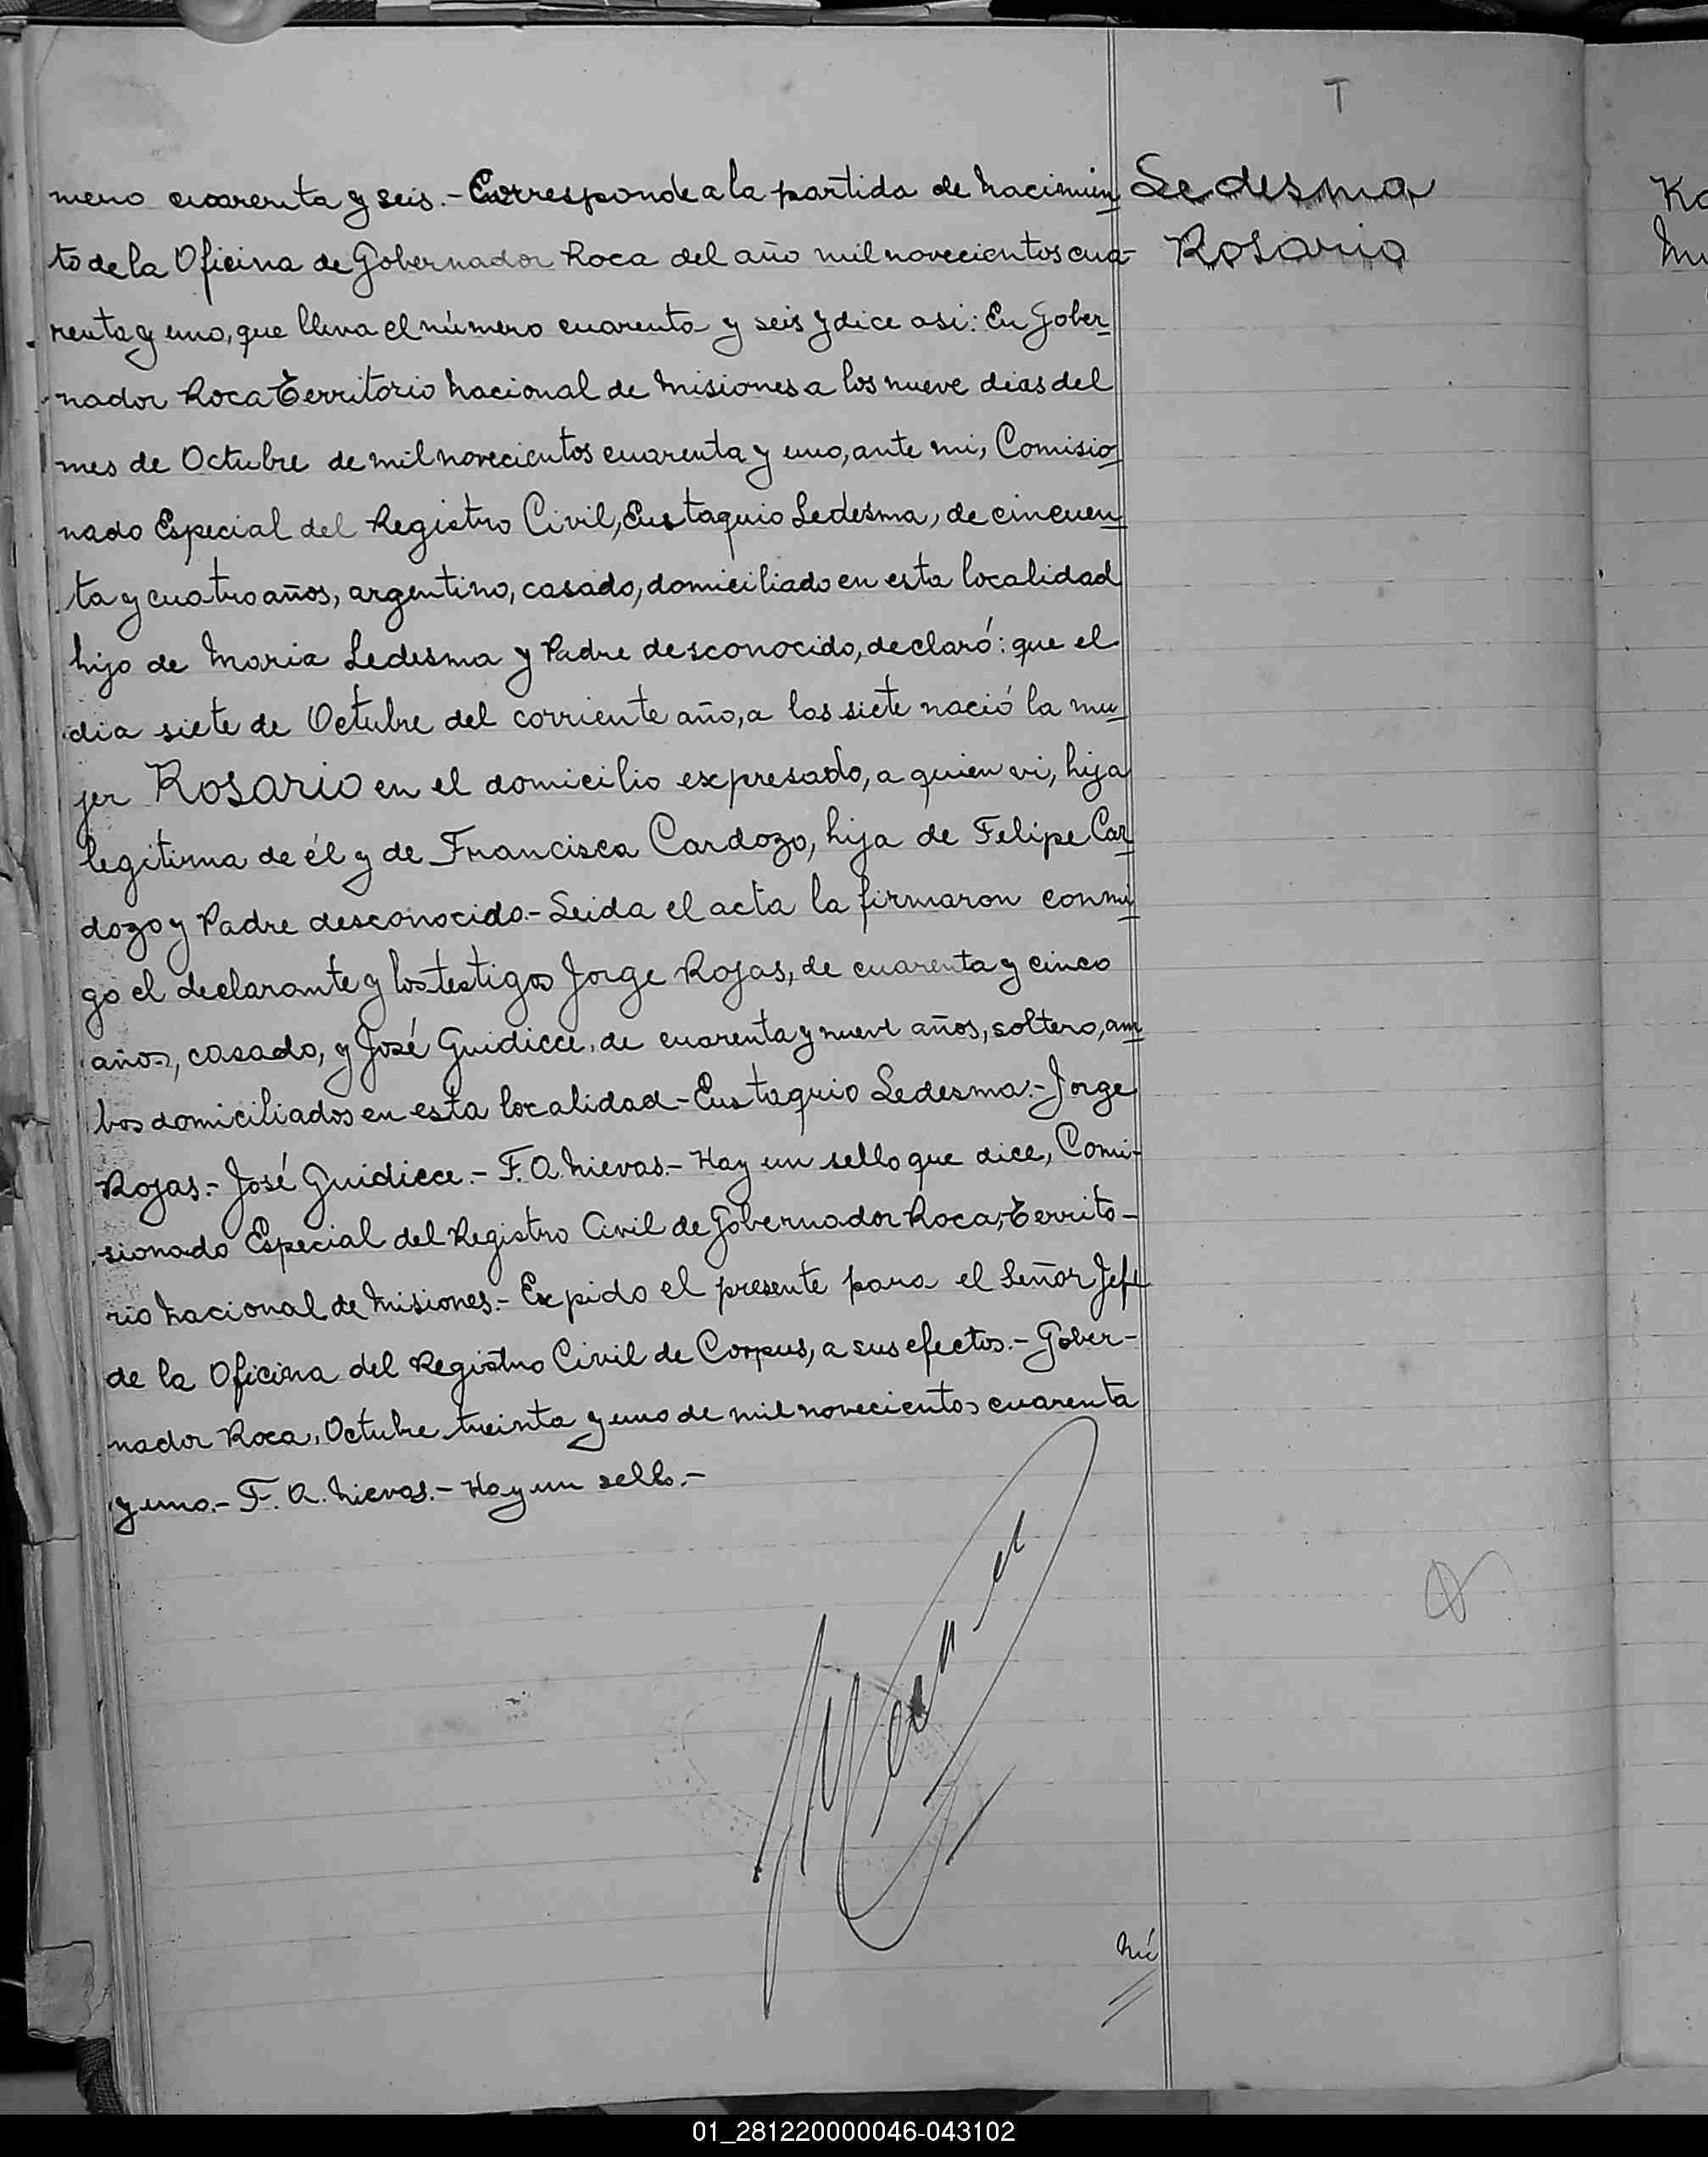 T
mero cuarenta y seis.- Corresponde a la partida de Nacimien
to de la Oficina de Gobernador Roca del año mil novecientos cua-
renta y uno, que lleva el número cuarenta y seis y dice asi: En Gober
nador Roca Territorio Nacional de Misiones a los nueve dias del
mes de Octubre de mil novecientos cuarenta y uno, ante mi, Comisio
nado Especial del Registro Civil, Eustaquio Ledesma, de cincuen
ta y cuatro años, argentino, casado, domiciliado en esta localidad
hijo de Maria Ledesma y Padre desconocido, declaró: que el
dia siete de Octubre del corriente año, a las siete nació la mu
jer ROSARIO en el domicilio expresado, a quien vi, hija
legitima de él y de Francisca Cardozo, hija de Felipe Car
dozo y Padre desconocido.- Leida el acta la firmaron conmi
go el declarante y los testigos Jorge Rojas, de cuarenta y cinco
años, casado, y José Guidicce, de cuarenta y nueve años, soltero, am
bos domiciliados en esta localidad- Eustaquio Ledesma.- Jorge
Rojas.- José Guidicce.- F. A. Nievas.- Hay un sello que dice, Comi-
sionado Especial del Registro Civil de Gobernador Roca, Territo-
rio Nacional de Misiones.- Expido el presente para el Señor Jefe
de la Oficina del Registro Civil de Corpus, a sus efectos.- Gober-
nador Roca, Octubre treinta y uno de mil novecientos cuarenta
y uno.- F. A. Nievas.- Hay un sello.-
Ledesma
Rosario
Nú
01_281220000046-043102